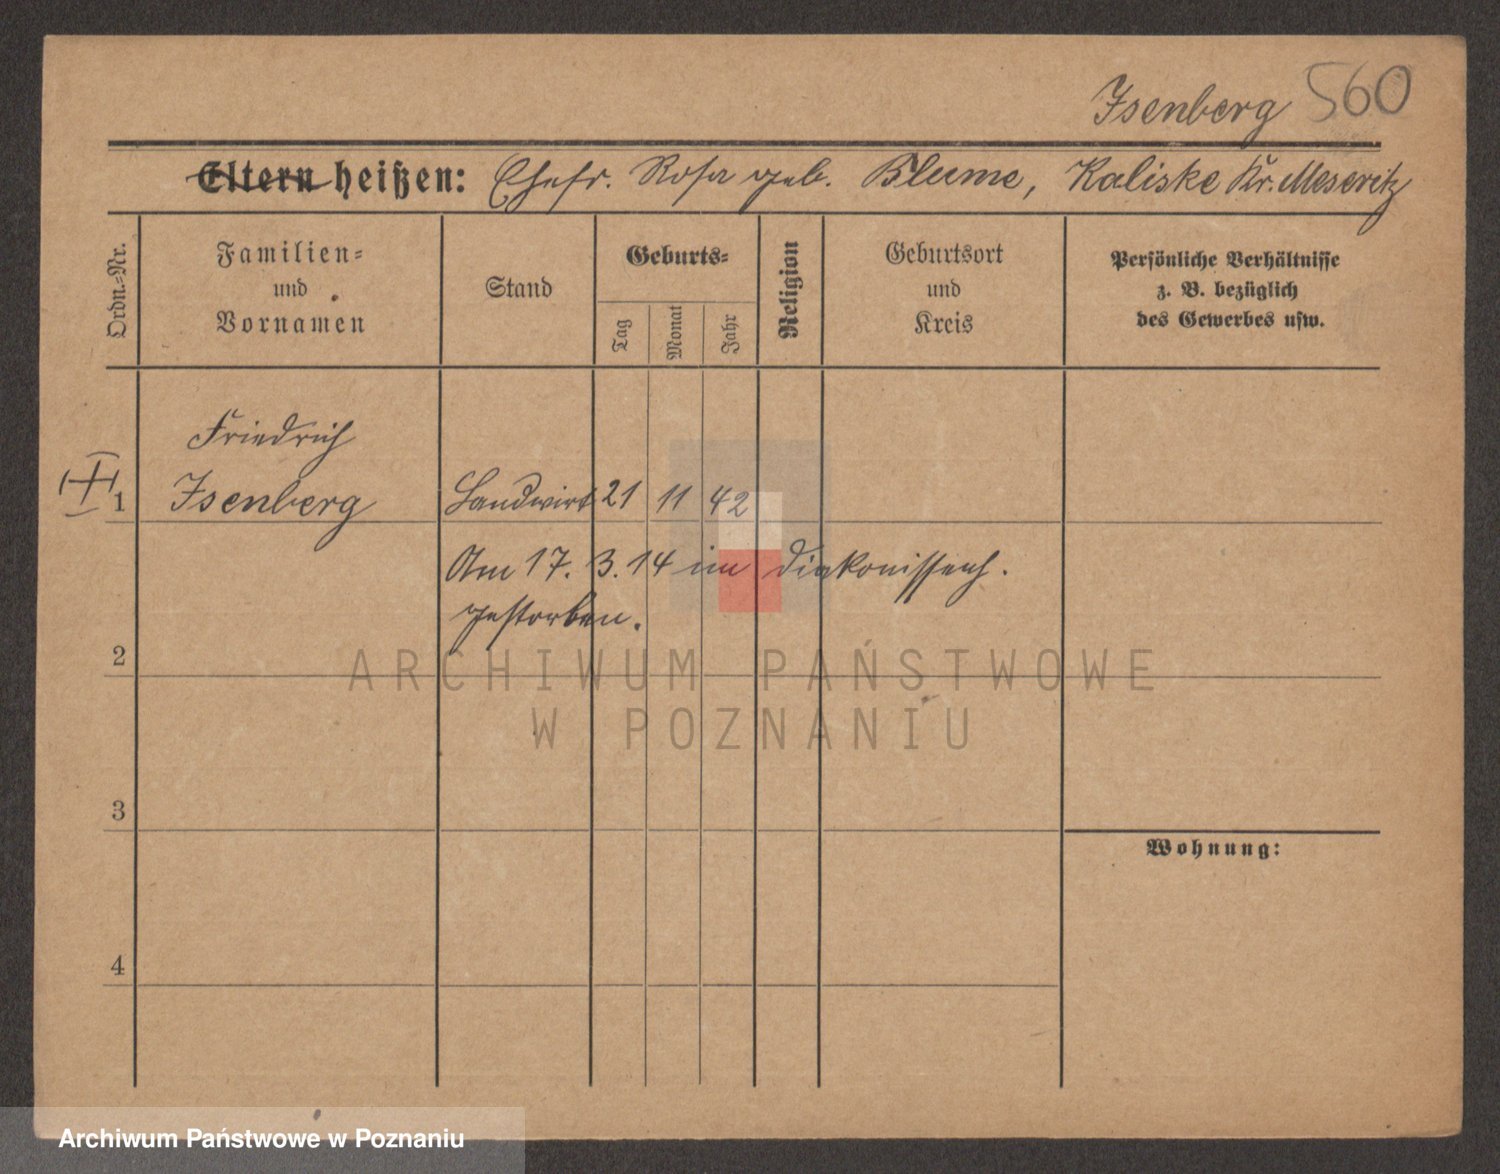 Isenberg 560
Eltern heißen: Ehefr. Rosa geb. Blume, Kaliske Kr. Meseritz
Ordn.=Nr.
Familien=
und
Vornamen
Stand
Geburts=
Tag
Monat
Jahr
Religion
Geburtsort
und
Kreis
Persönliche Verhältnisse
z. B. bezüglich
des Gewerbes usw.
Friedrich
1 Isenberg Landwirt 21 11 42
Am 17. 3. 14 im Diakonissenh.
gestorben.
2
ARCHIWUM PAŃSTWOWE
W POZNANIU
3
Wohnung:
4
Archiwum Państwowe w Poznaniu